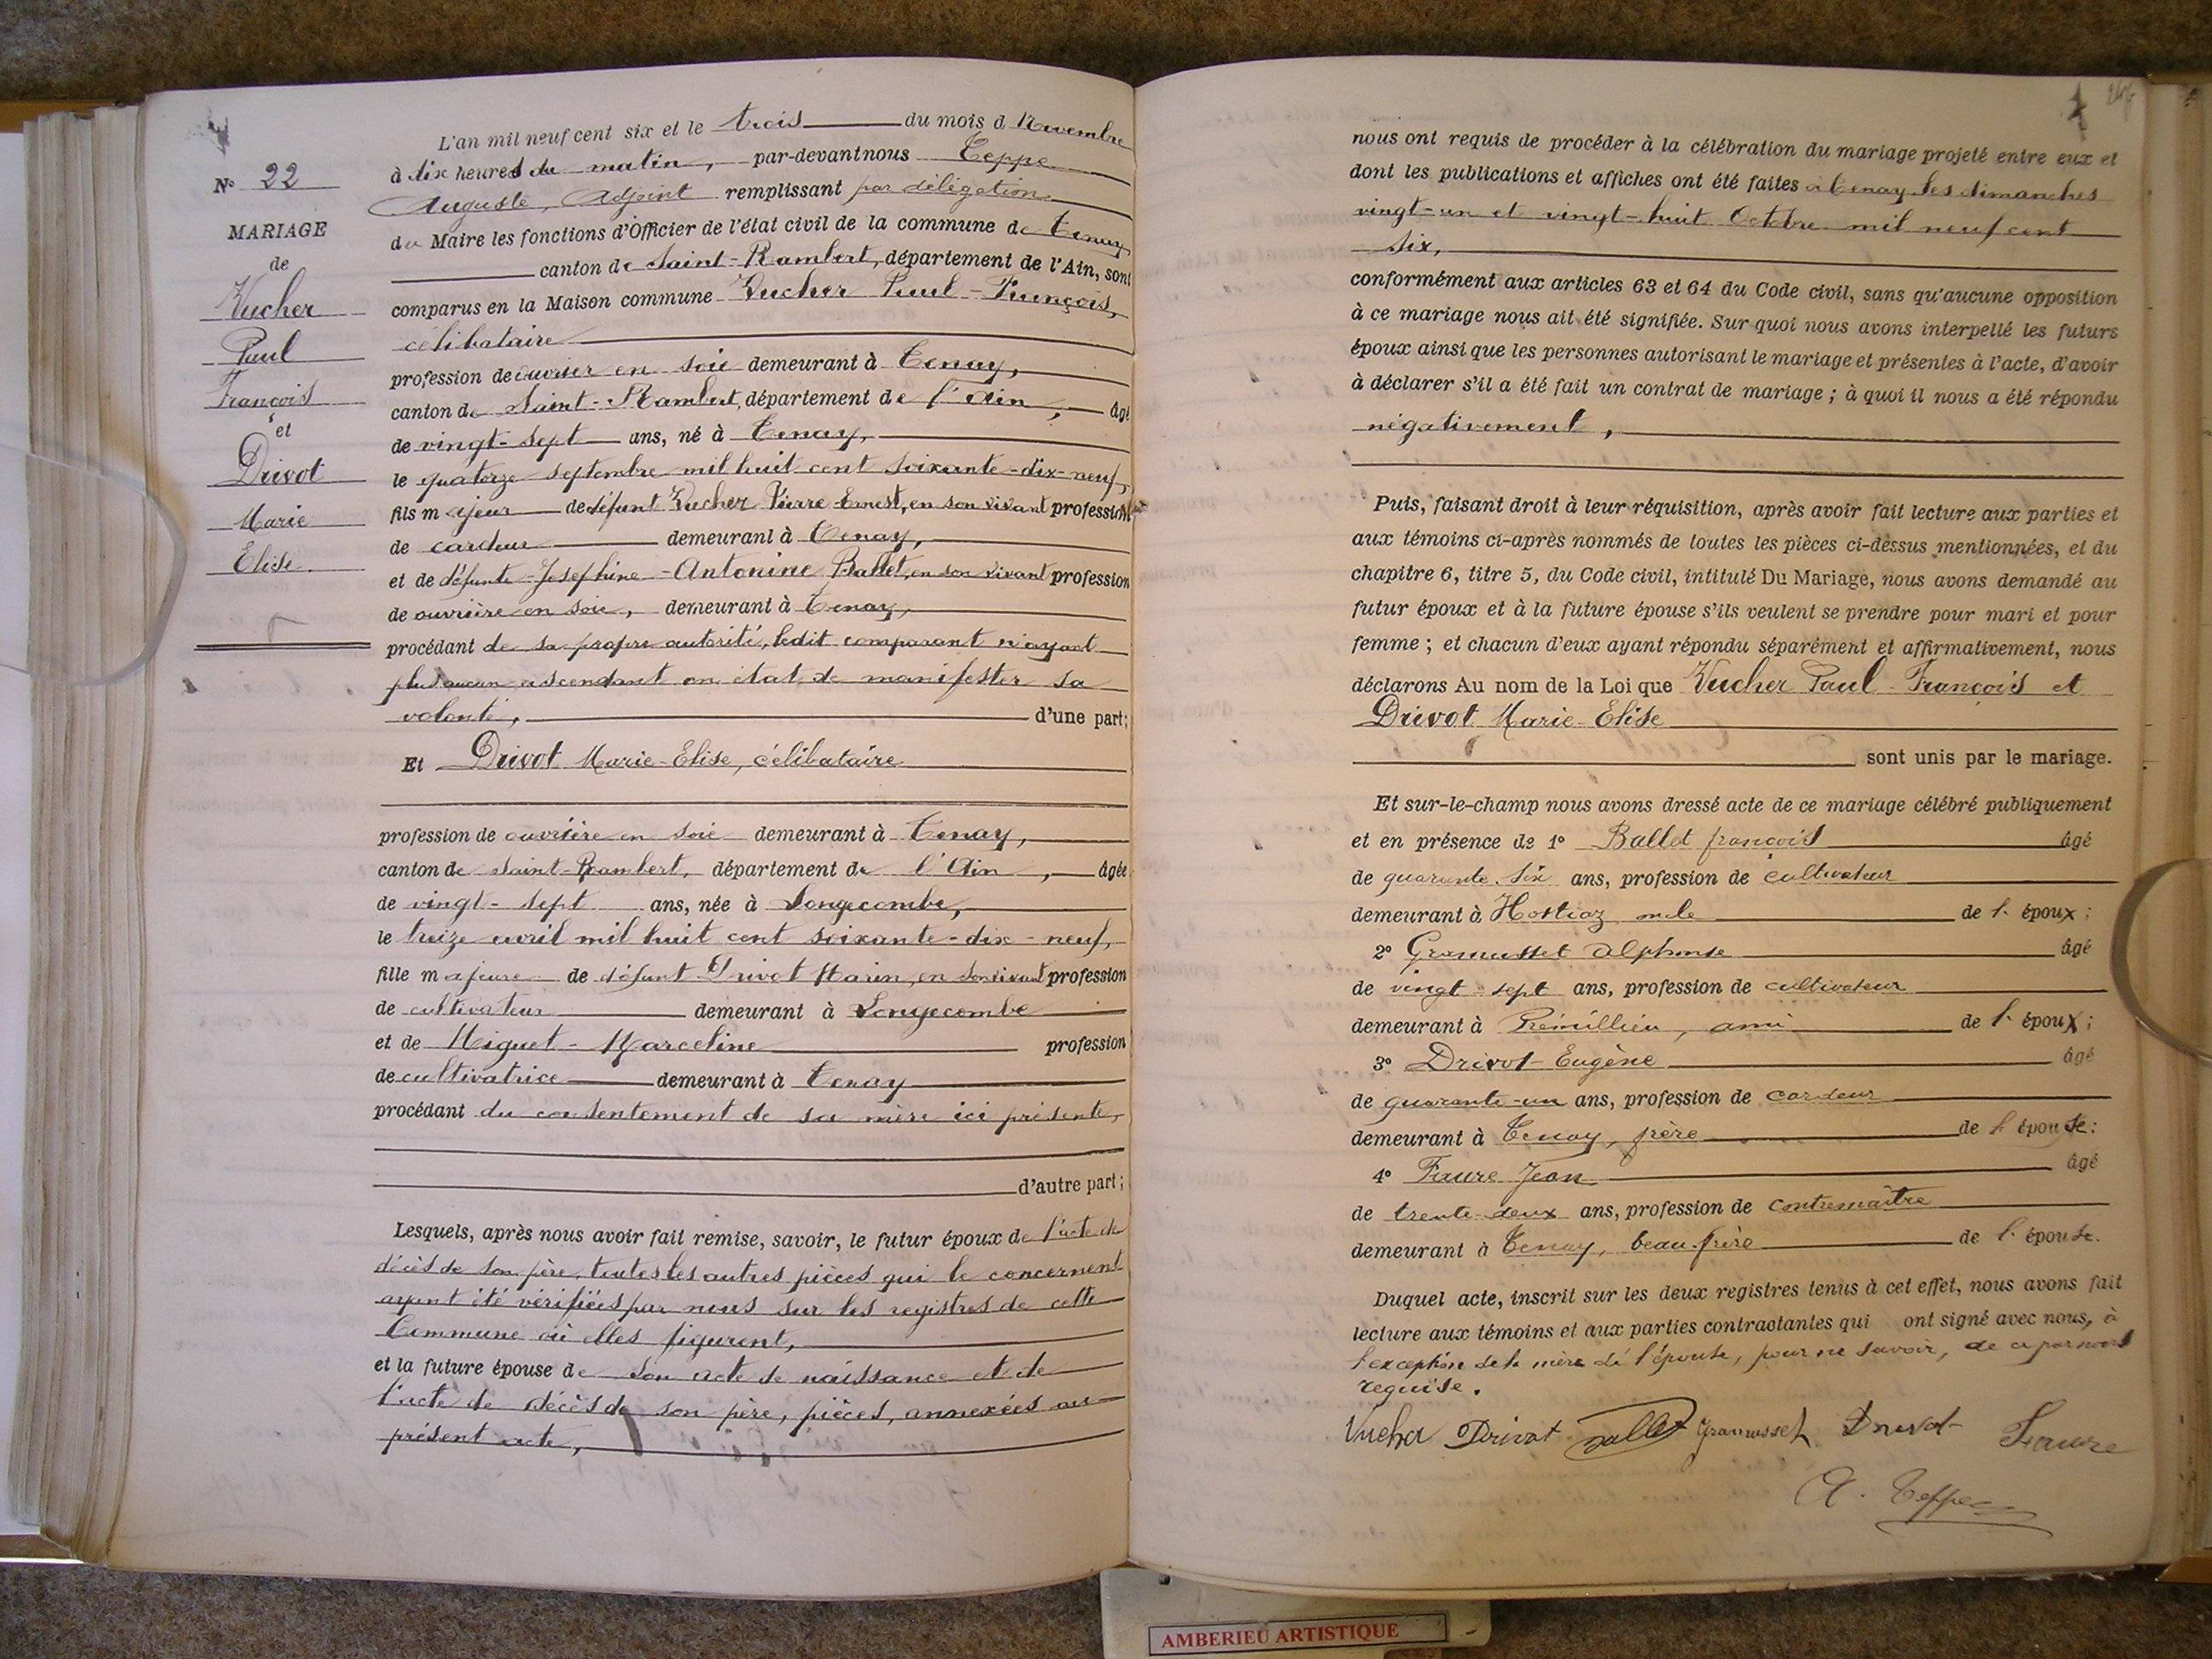 L'an mil neuf cent six et le trois du mois d Novembre
à dix heures du matin, par-devant nous Teppe
Auguste, Adjoint remplissant par délégation
du Maire les fonctions d'Officier de l'état civil de la commune de Tenay
canton de Saint-Rambert, département de l'Ain, sont
comparus en la Maison commune Vucher Paul-François,
célibataire
profession de ouvrier en soie demeurant à Tenay,
canton de Saint-Rambert, département de l'Ain, âgé
de vingt-sept ans, né à Tenay,
le quatorze septembre mil huit cent soixante-dix-neuf,
fils majeur de défunt Vucher Pierre Ernest, en son vivant profession
de cardeur demeurant à Tenay,
et de défunte Joséphine-Antonine Ballet, en son vivant profession
de ouvrière en soie, demeurant à Tenay,
procédant de sa propre autorité, ledit comparant n'ayant
plus aucun ascendant en état de manifester sa
volonté, d'une part;
Et Drivot Marie-Elise, célibataire
profession de ouvrière en soie demeurant à Tenay,
canton de Saint-Rambert, département de l'Ain, âgée
de vingt-sept ans, née à Longecombe,
le treize avril mil huit cent soixante-dix-neuf,
fille majeure de défunt Drivot Marin, en son vivant profession
de cultivateur demeurant à Longecombe
et de Miguet-Marceline profession
de cultivatrice demeurant à Tenay
procédant du consentement de sa mère ici présente,
d'autre part;
Lesquels, après nous avoir fait remise, savoir, le futur époux de l'acte de
décès de son père, toutes les autres pièces qui le concernent
ayant été vérifiées par nous sur les registres de cette
Commune où elles figurent,
et la future épouse de son acte de naissance et de
l'acte de décès de son père, pièces, annexées au
présent acte,
N° 22
MARIAGE
de
Vucher
Paul
François
et
Drivot
Marie
Elise.
nous ont requis de procéder à la célébration du mariage projeté entre eux et
dont les publications et affiches ont été faites à Tenay les dimanches
vingt-un et vingt-huit Octobre mil neuf cent
six,
conformément aux articles 63 et 64 du Code civil, sans qu'aucune opposition
à ce mariage nous ait été signifiée. Sur quoi nous avons interpellé les futurs
époux ainsi que les personnes autorisant le mariage et présentes à l'acte, d'avoir
à déclarer s'il a été fait un contrat de mariage ; à quoi il nous a été répondu
négativement,
Puis, faisant droit à leur réquisition, après avoir fait lecture aux parties et
aux témoins ci-après nommés de toutes les pièces ci-dessus mentionnées, et du
chapitre 6, titre 5, du Code civil, intitulé Du Mariage, nous avons demandé au
futur époux et à la future épouse s'ils veulent se prendre pour mari et pour
femme ; et chacun d'eux ayant répondu séparément et affirmativement, nous
déclarons Au nom de la Loi que Vucher Paul-François et
Drivot Marie-Elise
sont unis par le mariage.
Et sur-le-champ nous avons dressé acte de ce mariage célébré publiquement
et en présence de 1° Ballet françois âgé
de quarante-six ans, profession de cultivateur
demeurant à Hostiaz oncle de l' époux ;
2° Gramusset Alphonse âgé
de vingt-sept ans, profession de cultivateur
demeurant à Prémillieu, ami de l' époux ;
3° Drivot Eugène âgé
de quarante-un ans, profession de cardeur
demeurant à Tenay, frère de l'épouse :
4° Faure Jean âgé
de trente-deux ans, profession de contremaître
demeurant à Tenay, beau-frère de l' épouse.
Duquel acte, inscrit sur les deux registres tenus à cet effet, nous avons fait
lecture aux témoins et aux parties contractantes qui ont signé avec nous, à
l'exception de la mère de l'épouse, pour ne savoir, de ce par nous
requise.
Vucher Drivot Ballet Gramusset Drivot Faure
A. Teppe
AMBERIEU ARTISTIQUE